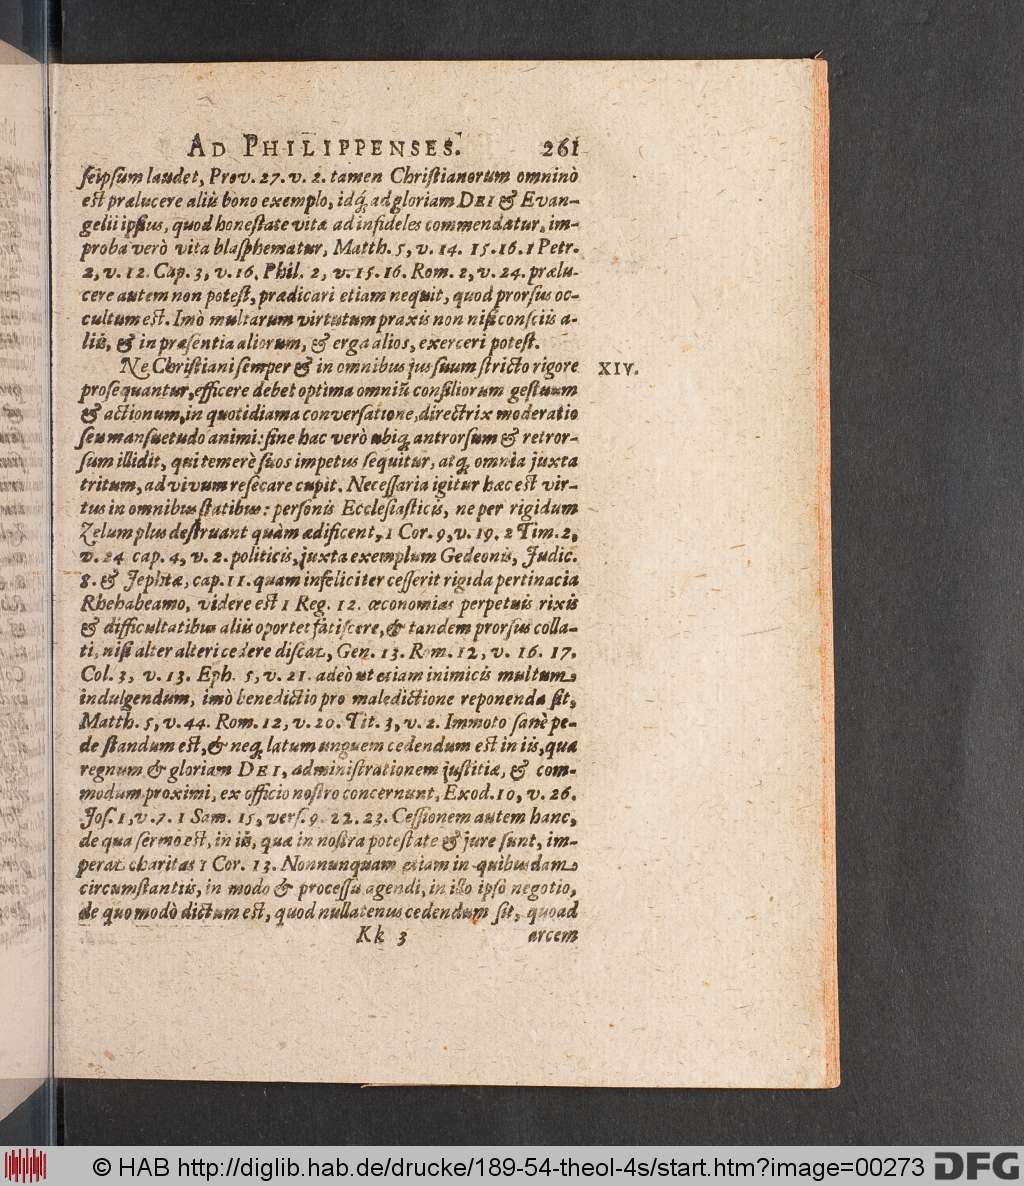 AD PHILIPPENSES. 261
ſeipſum laudet, Prov. 27. v. 2. tamen Chriſtianorum omninò
eſt prælucere aliis bono exemplo, idq́; ad gloriam DEI & Evan-
gelii ipſius, quod honeſtate vitæ ad infideles commendatur, im-
proba verò vita blaſphematur, Matth. 5, v. 14. 15. 16. 1 Petr.
2, v. 12. Cap. 3, v. 16. Phil. 2, v. 15. 16. Rom. 2, v. 24. prælu-
cere autem non poteſt, prædicari etiam nequit, quod prorſus oc-
cultum eſt. Imò multarum virtutum praxis non niſi conſciis a-
liis, & in præſentia aliorum, & erga alios, exerceri poteſt.
Ne Chriſtiani ſemper & in omnibus jus ſuum ſtricto rigore XIV.
proſequantur, efficere debet optima omniũ conſiliorum geſtuum
& actionum, in quotidiama converſatione, directrix moderatio
ſeu manſuetudo animi: ſine hac verò ubiq́; antrorſum & retror-
ſum illidit, qui temerè ſuos impetus ſequitur, atq́; omnia juxta
tritum, ad vivum reſecare cupit. Neceſſaria igitur hæc eſt vir-
tus in omnibus ſtatibus: perſonis Eccleſiaſticis, ne per rigidum
Zelum plus deſtruant quàm ædificent, 1 Cor. 9, v. 19. 2 Tim. 2,
v. 24 cap. 4, v. 2. politicis, juxta exemplum Gedeonis, Judic.
8. & Jephtæ, cap. 11. quam infeliciter ceſſerit rigida pertinacia
Rhehabeamo, videre eſt 1 Reg. 12. œconomias perpetuis rixis
& difficultatibus aliis oportet fatiſcere, & tandem prorſus colla-
ti, niſi alter alteri cedere diſcat, Gen. 13. Rom. 12, v. 16. 17.
Col. 3, v. 13. Eph. 5, v. 21. adeò ut etiam inimicis multum
indulgendum, imò benedictio pro maledictione reponenda ſit,
Matth. 5, v. 44. Rom. 12, v. 20. Tit. 3, v. 2. Immoto ſanè pe-
de ſtandum eſt, & neq́; latum unguem cedendum eſt in iis, quæ
regnum & gloriam DEI, adminiſtrationem juſtitiæ, & com-
modum proximi, ex officio noſtro concernunt, Exod. 10, v. 26.
Joſ. 1, v. 7. 1 Sam. 15, verſ. 9. 22. 23. Ceſſionem autem hanc,
de qua ſermo eſt, in iis, quæ in noſtra poteſtate & jure ſunt, im-
perat charitas 1 Cor. 13. Nonnunquam etiam in quibusdam
circumſtantiis, in modo & proceſſu agendi, in illo ipſo negotio,
de quo modò dictum eſt, quod nullatenus cedendum ſit, quoad
Kk 3 arcem
© HAB http://diglib.hab.de/drucke/189-54-theol-4s/start.htm?image=00273 DFG